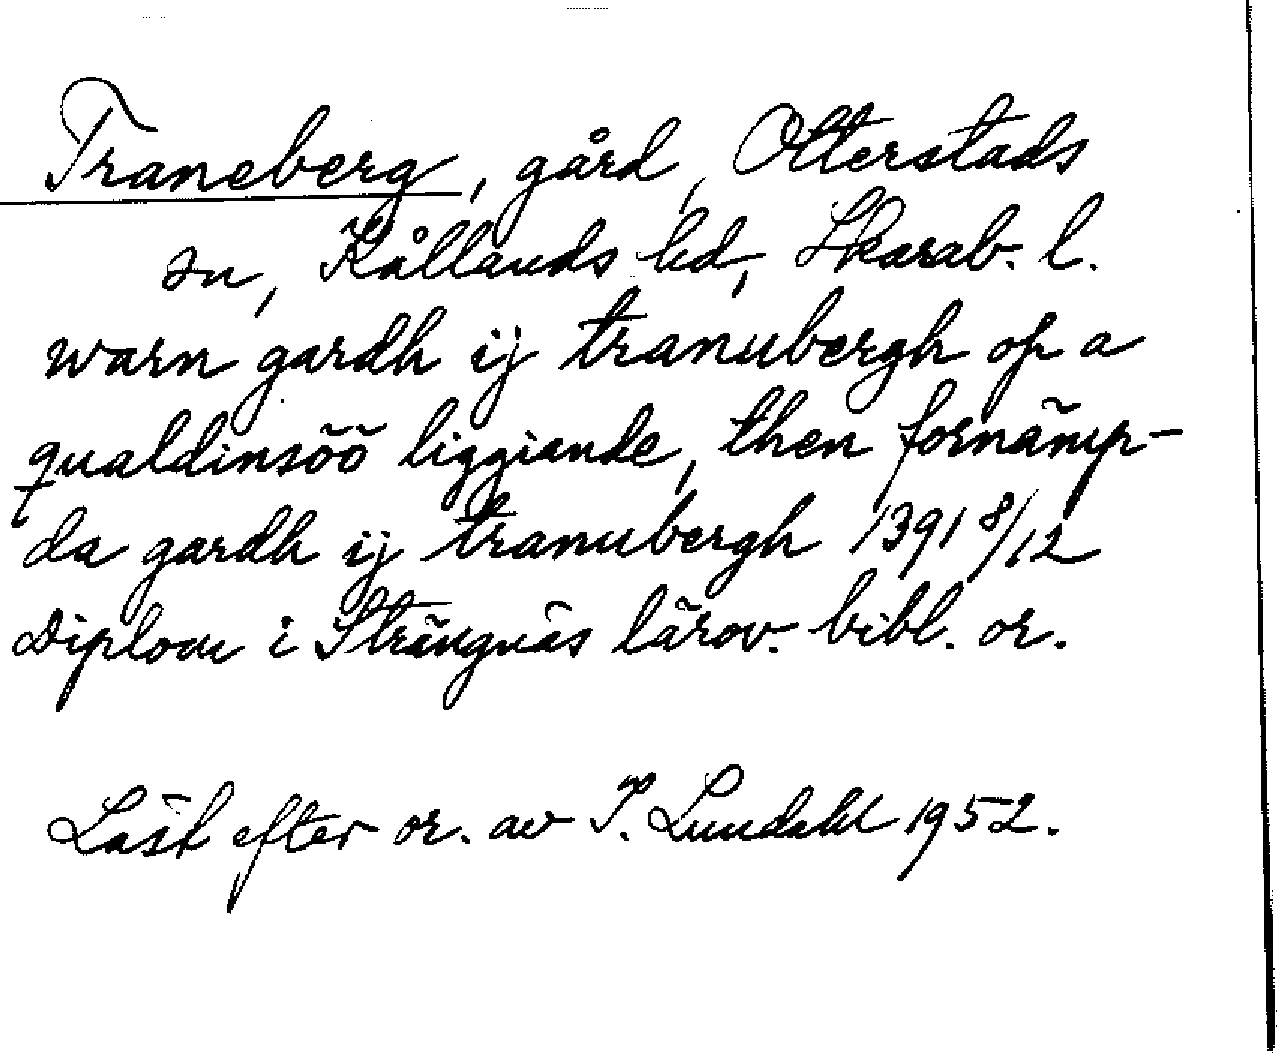 Traneberg, gård, Otterstads
sn, Kållands hd, Skarab. l.
warn gardh ij tranubergh op a
qualdinsöö liggiande, then fornämp-
da gardh ij tranubergh 1391 8/12
Diplom i Strängnäs lärov. bibl. or.
Läst efter or. av I. Lundahl 1952.